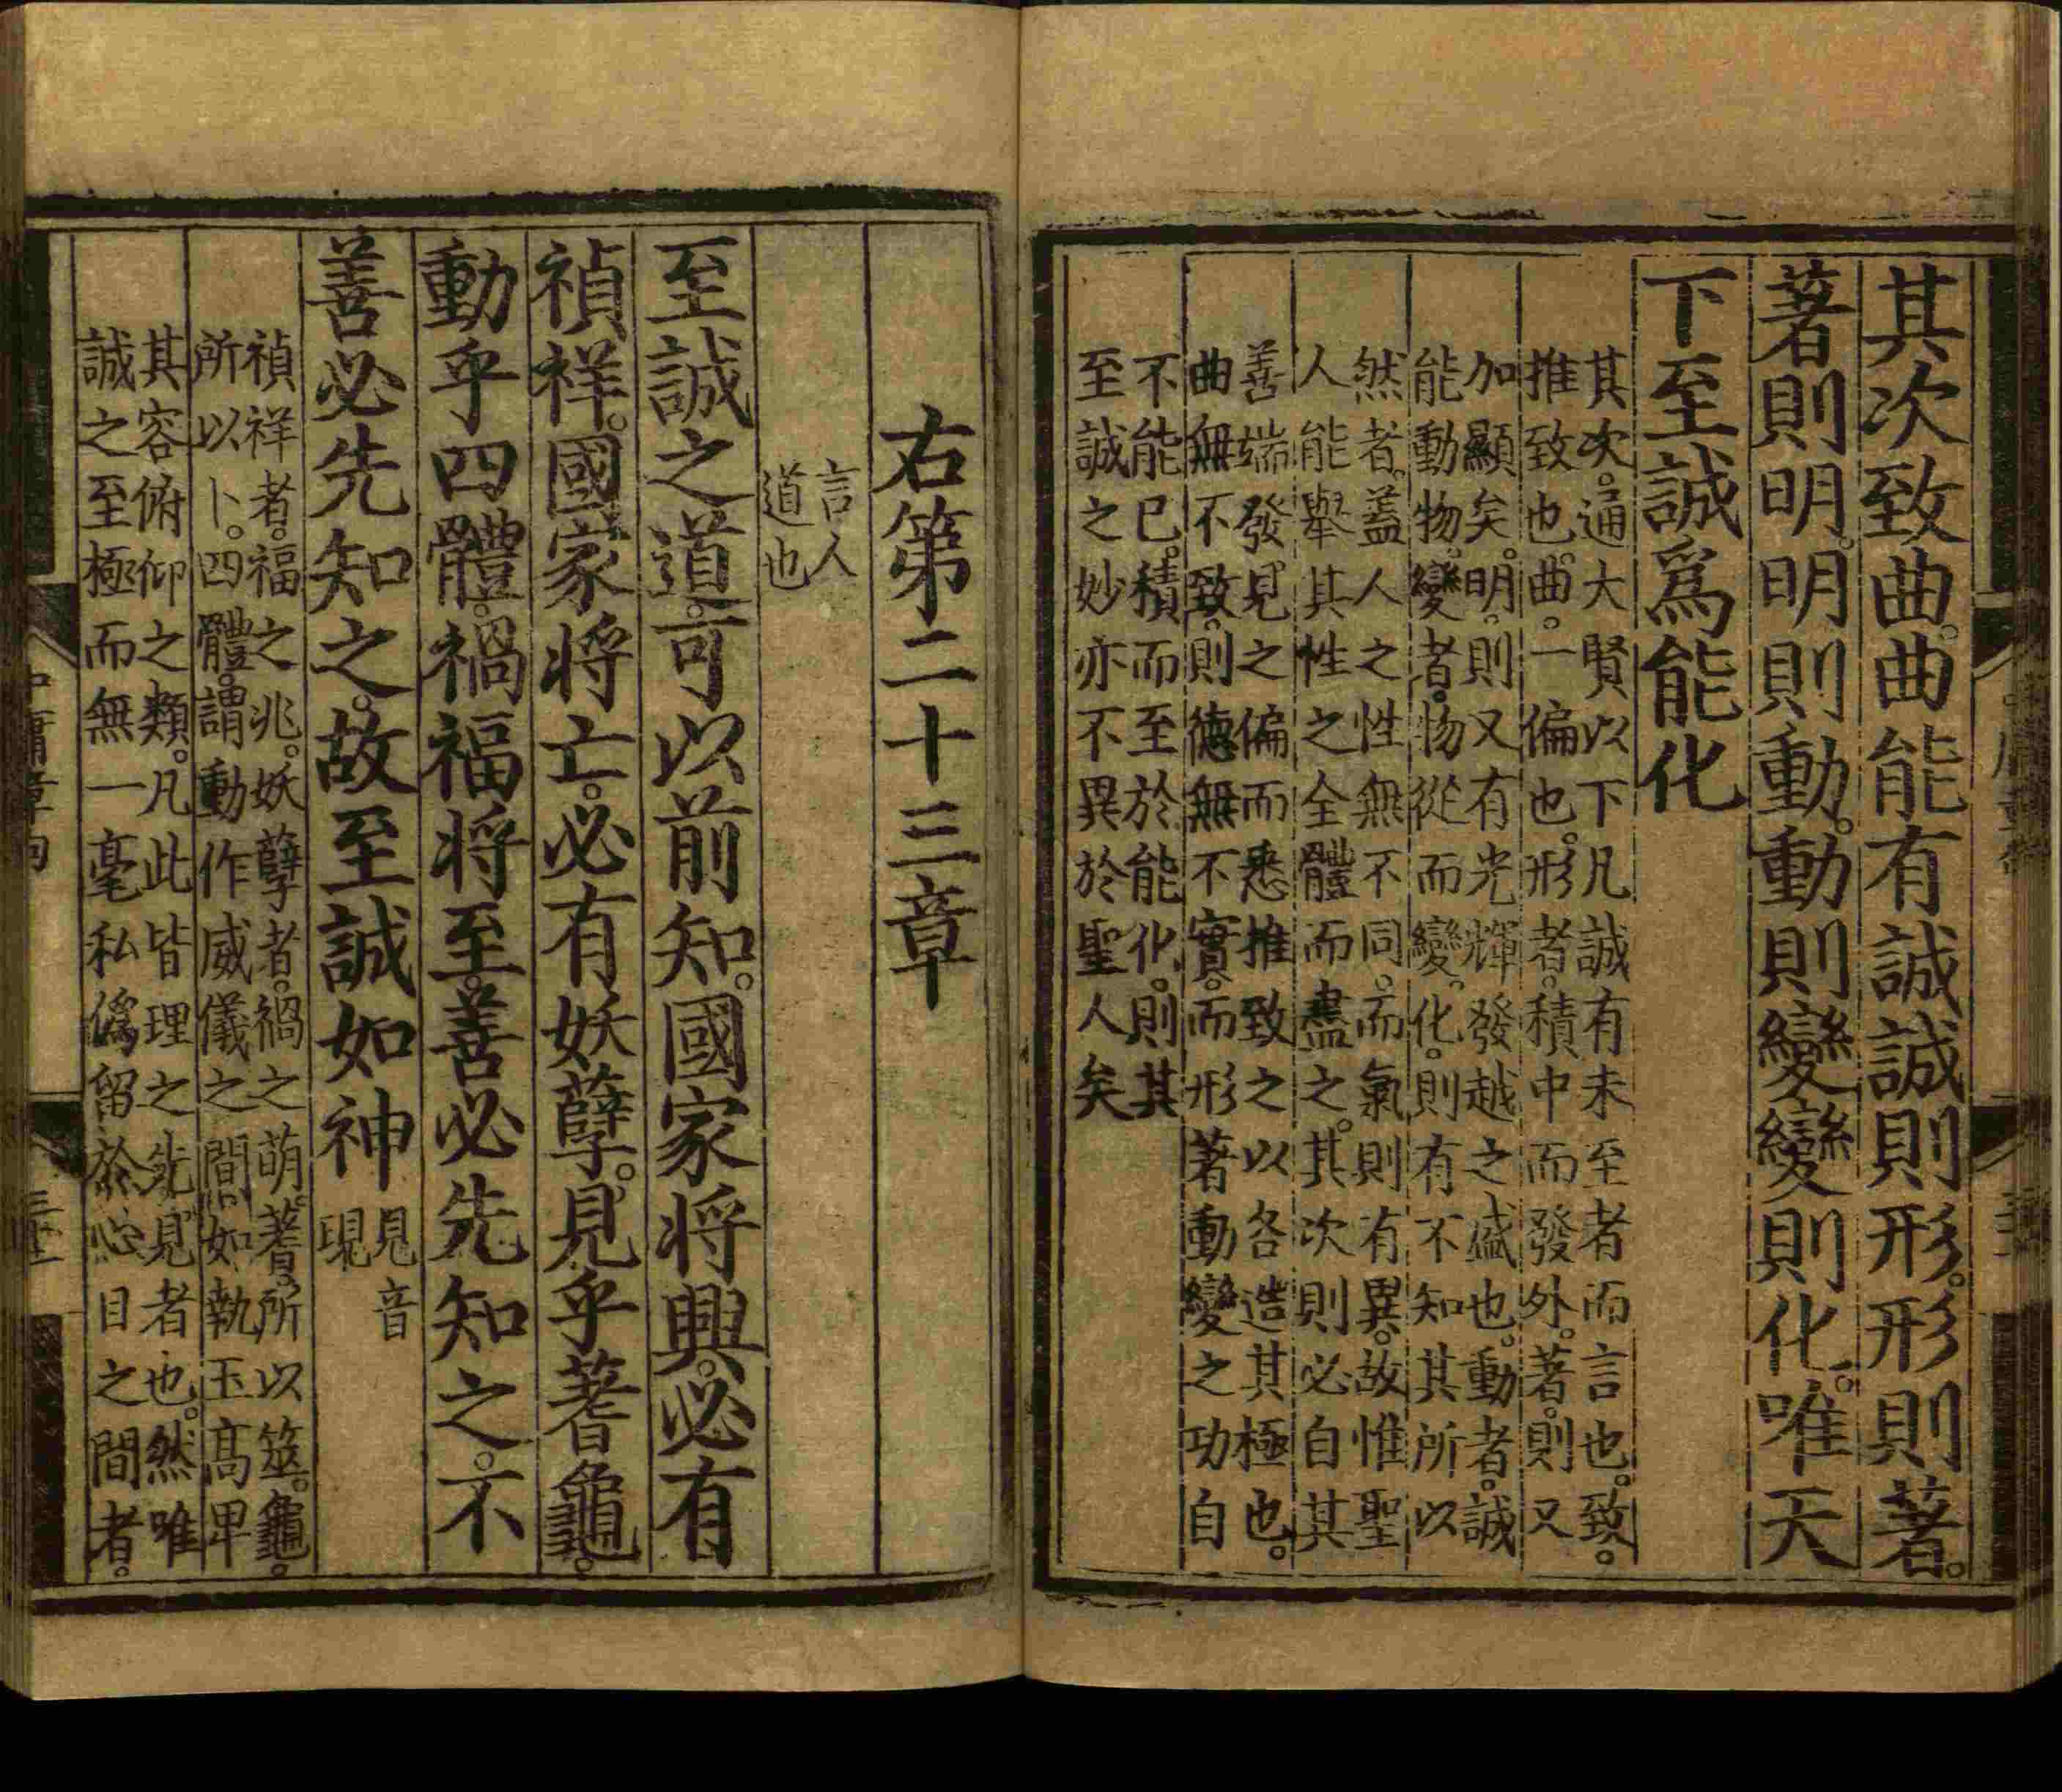 其次致曲。曲能有誠誠則形。形則著。
著則明。明則動。動則變變則化。唯天
下至誠爲能化
其次。通大賢以下凡誠有未至者而言也。致。
推致也。曲。一偏也。形者。積中而發外。著。則又
加顯矣。明。則又有光輝發越之盛也。動者。誠
能動物。變者。物從而變。化。則有不知其所以
然者。蓋人之性無不同。而氣則有異。故惟聖
人能舉其性之全體而盡之。其次則必自其
善端發見之偏而悉推致之以各造其極也。
曲無不致。則德無不實。而形著動變之功自
不能已。積而至於能化。則其
至誠之妙亦不異於聖人矣
右第二十三章
言人
道也
至誠之道。可以前知。國家將興。必有
禎祥。國家將亡。必有妖孼。見乎蓍龜。
動乎四體。禍福將至。善必先知之。不
善必先知之。故至誠如神
見音
現
禎祥者。福之兆。妖孼者。禍之萌。蓍。所以筮。龜。
所以卜。四體。謂動作威儀之間。如執玉高卑
其容俯仰之類。凡此皆理之先見者也。然唯
誠之至極而無一毫私僞留於心目之間者。
中庸章句